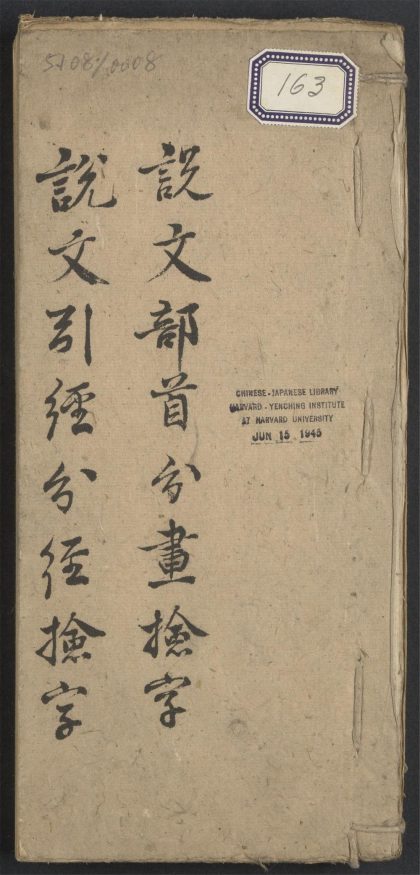 5108/0008
163
說文部首分畫撿字
說文引經分徑撿字
CHINESE-JAPANESE LIBRARY
HARVARD-YENCHING INSTITUTE
AT HARVARD UNIVERSITY
JUN 15 1945